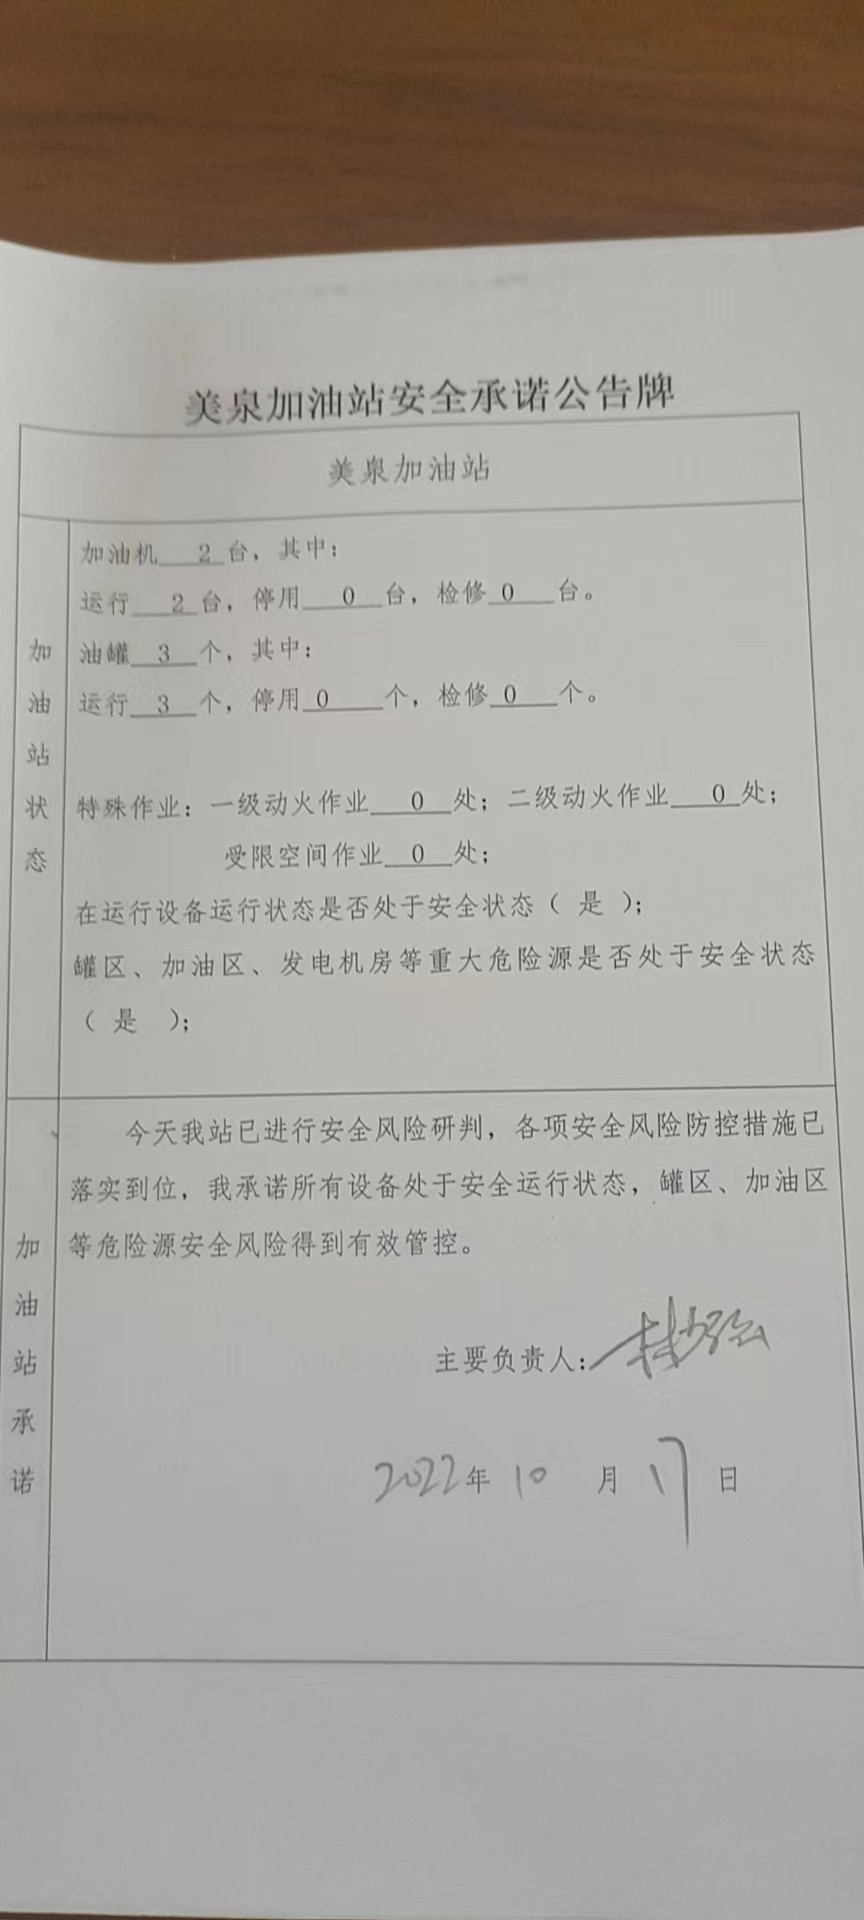 美泉加油站安全承诺公告牌
美泉加油站
加油站状态
加油机 2 台，其中：
运行 2 台，停用 0 台，检修 0 台。
油罐 3 个，其中：
运行 3 个，停用 0 个，检修 0 个。
特殊作业：一级动火作业 0 处；二级动火作业 0 处；
受限空间作业 0 处；
在运行设备运行状态是否处于安全状态（ 是 ）；
罐区、加油区、发电机房等重大危险源是否处于安全状态
（ 是 ）；
加油站承诺
今天我站已进行安全风险研判，各项安全风险防控措施已
落实到位，我承诺所有设备处于安全运行状态，罐区、加油区
等危险源安全风险得到有效管控。
主要负责人：
2022年 10 月 17 日